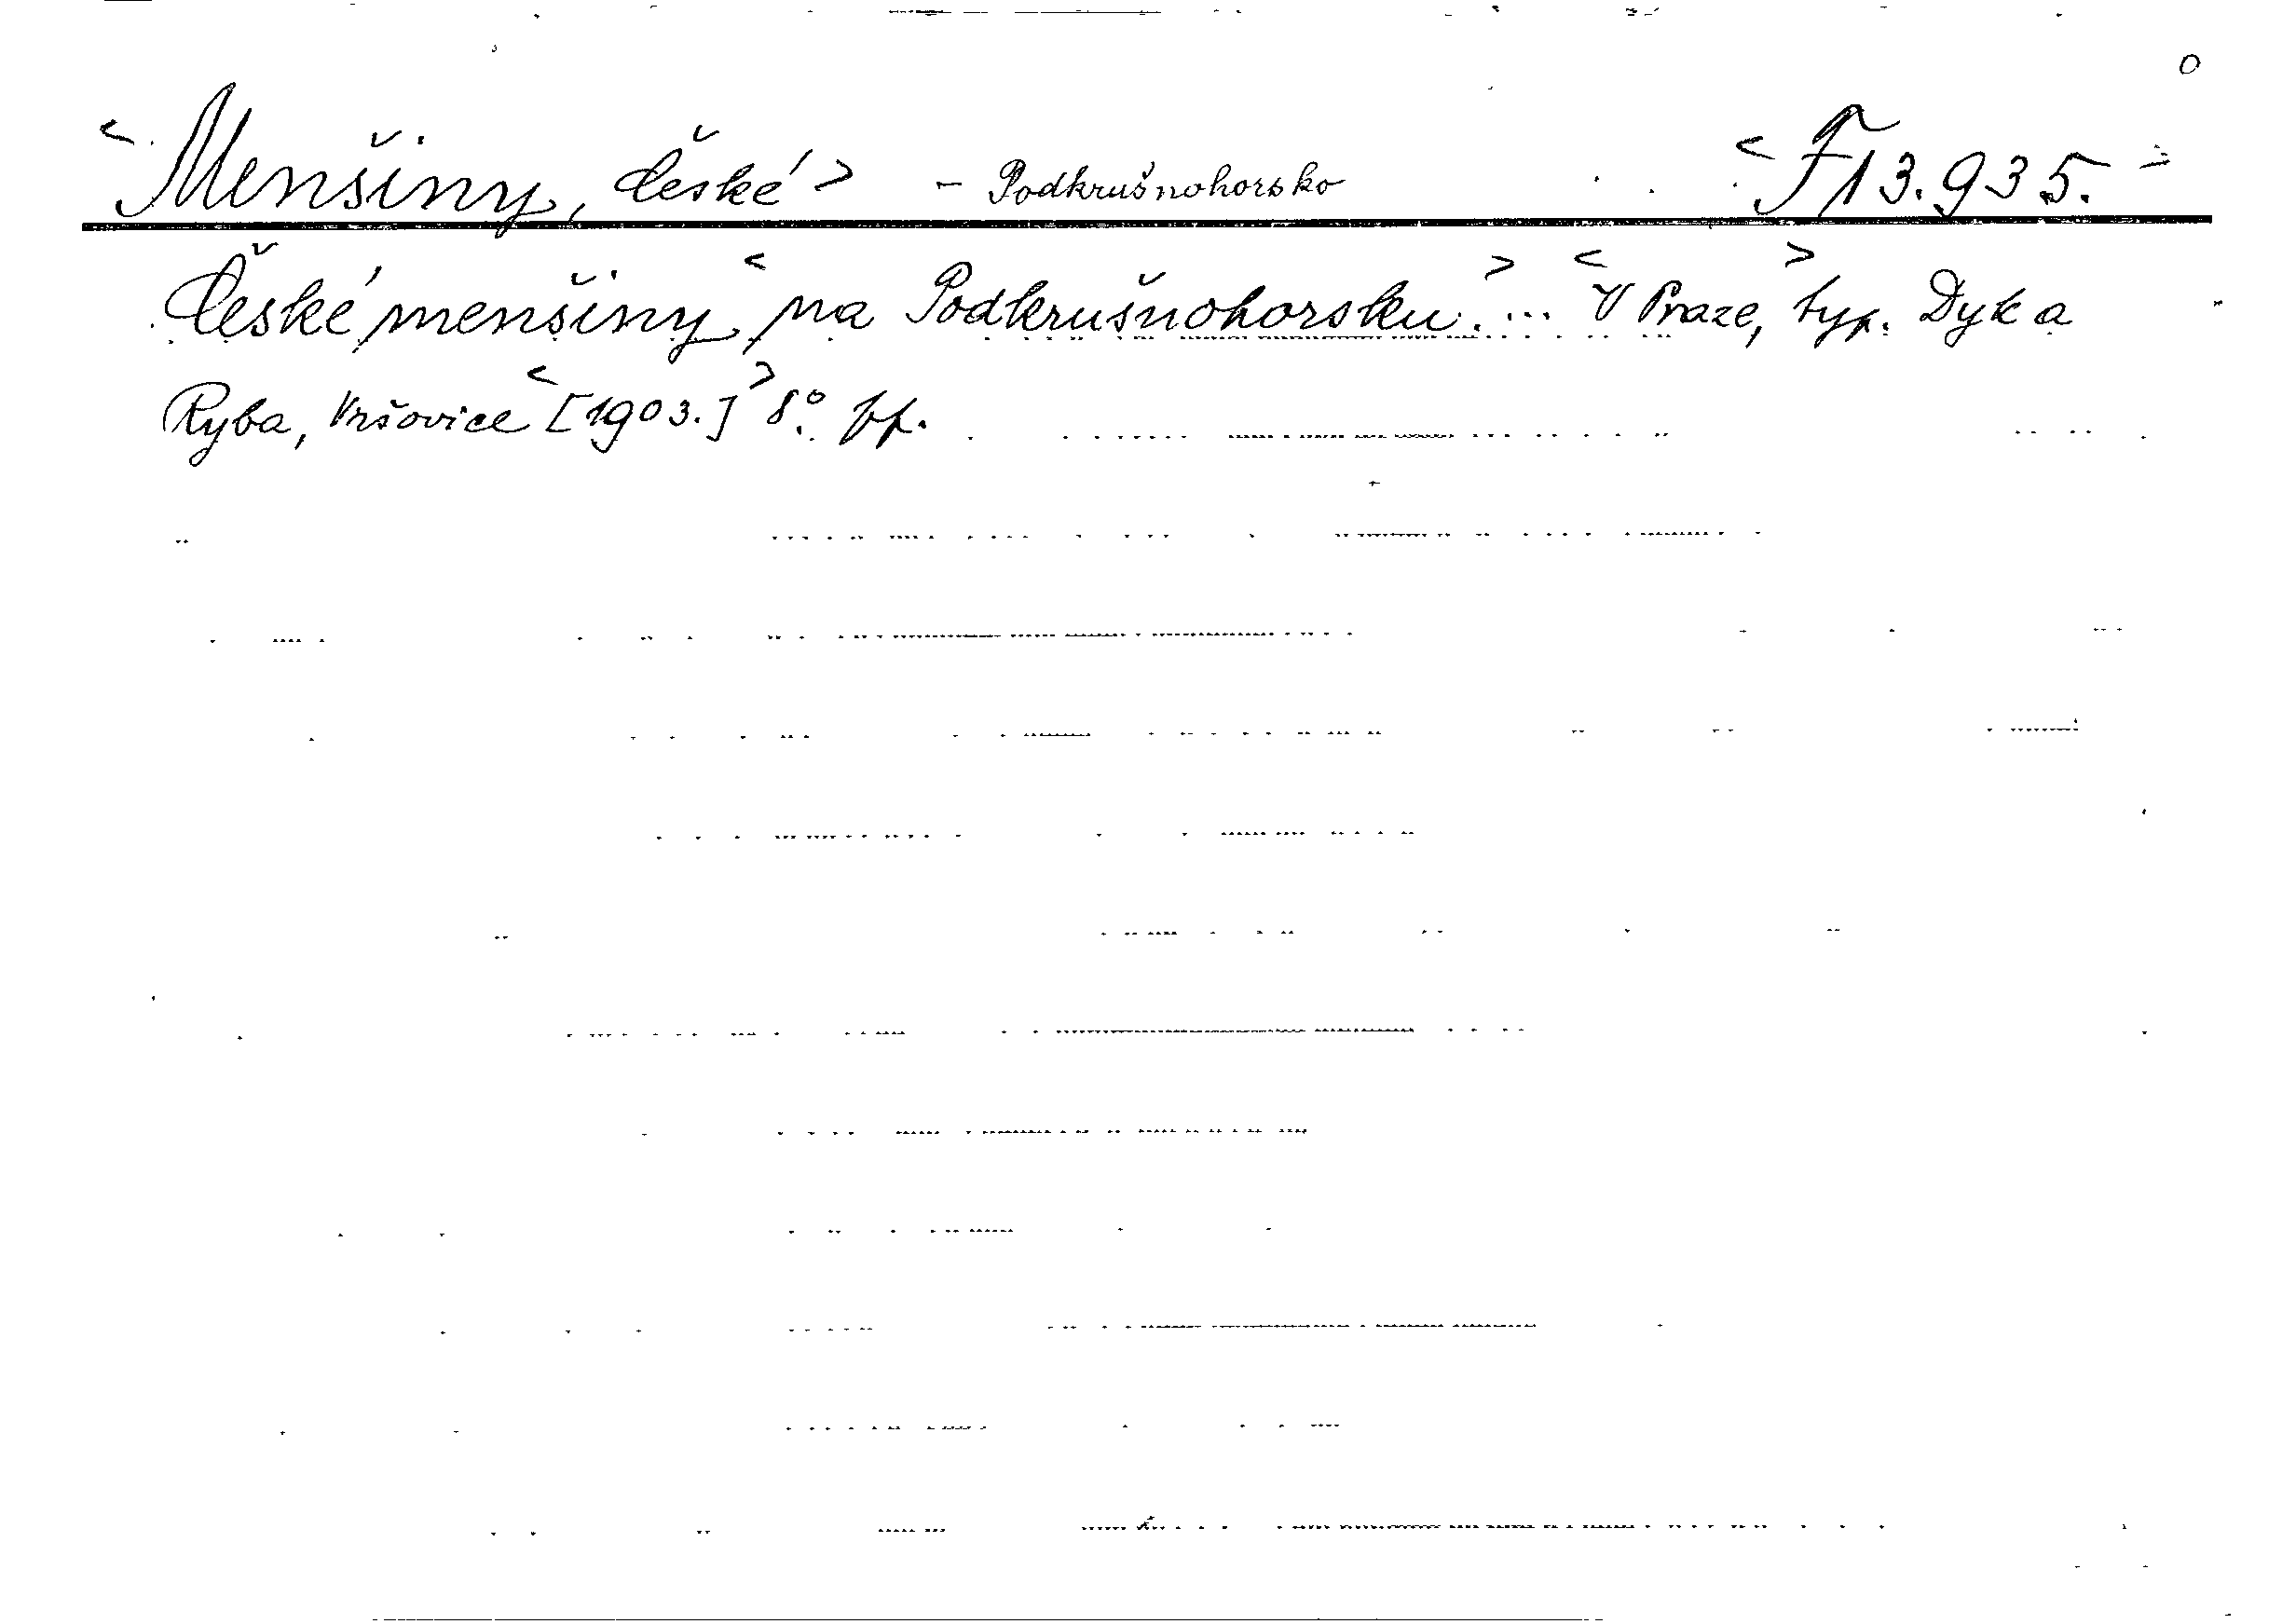 <Menšiny, české> - Podkrušnohorsko <F 13.935.>
České menšiny <na Podkrušnohorsku. ...> <V Praze,> typ. Dyk a
Ryba, Vršovice <[1903.]> 8.°